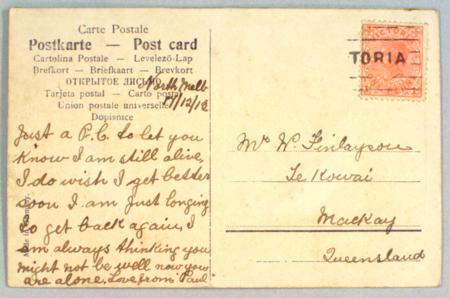 Carte Postale
Postkarte — Post card
Cartolina Postale — Levelező-Lap
Brefkort — Briefkaart — Brevkort
ОТКРЫТОЕ ПИСЬМО
Tarjeta postal — Carto postal
Union postale universelle
Dopisnice
North Melb
/12/12
Just a P.C. to let you
know I am still alive,
I do wish I get better
soon I am just longing
to get back again, I
am always thinking you
might not be well now you
are alone, Love from "Paul"
VICTORIA
TORIA
Mr W. Finlayson
Te Kowai
Mackay
Queensland